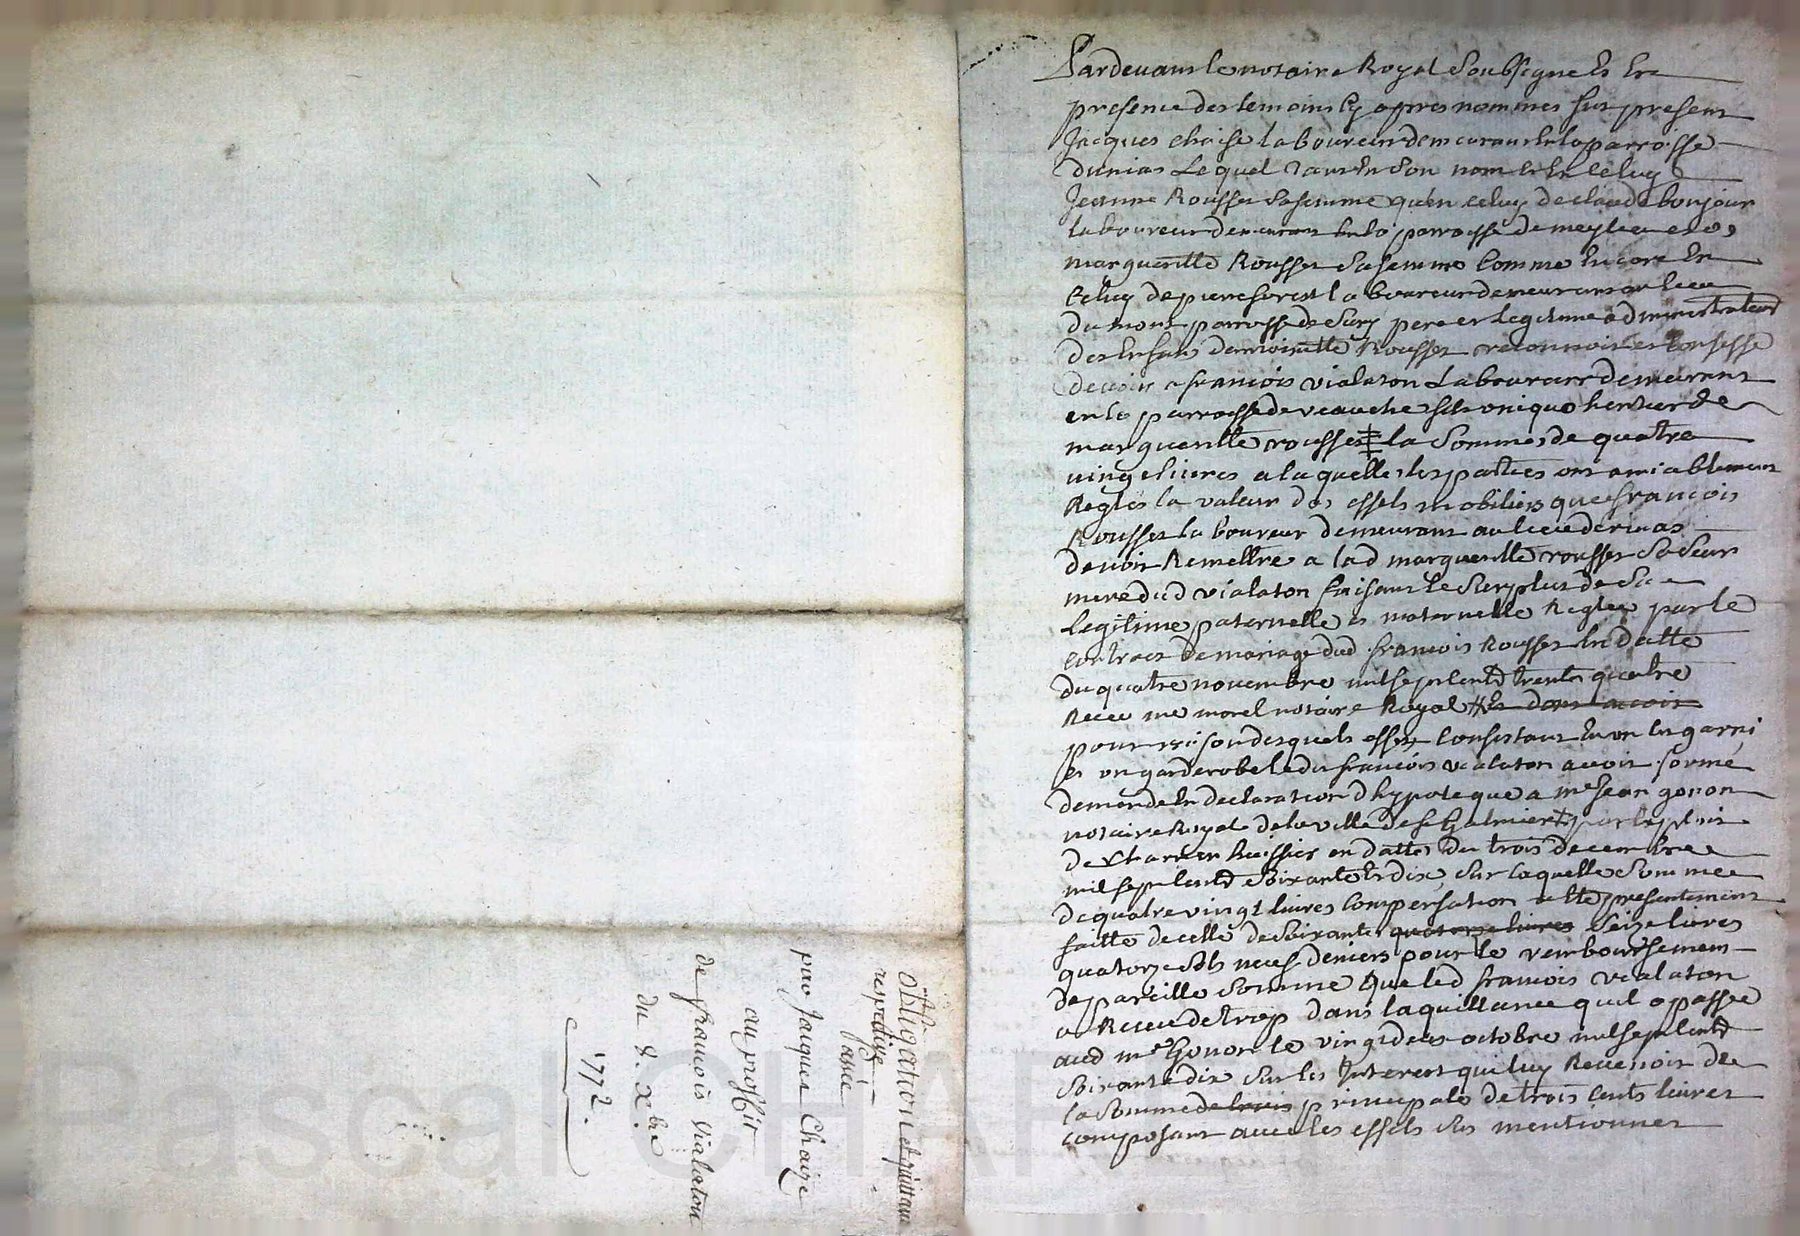 obligation et quittance
respective
passée
par Jacques Chaize
au proffit
de francois vialaton
du 8. Xbre
1772.
Pardevant le notaire Royal soubsigne et en
presence des temoins cy apres nommes fut present
Jacques chaise laboureur demeurant en la parroisse
dunias lequel tant en son nom et en celuy
Jeanne Rousset sa femme qu'en celuy de claude bonjour
laboureur demeurant en la parroisse de meylieu et
margueritte Rousset sa femme comme encore en
celuy de pierre forest laboureur demeurant au lieu
du mont parroisse de Sury pere et legitime administrateur
des enfans demoiselle Rousset reconnoit et confesse
devoir a francois vialaton laboureur demeurant
en la parroisse de veauche fils unique heritier de
margueritte rousset la somme de quatre
vingt livres a laquelle les parties ont amiablement
Regles la valeur des effets mobiliers que francois
Rousset laboureur demeurant au lieu de rivas
devoit Remettre a lad margueritte rousset sa soeur
mere dud vialaton faisant le surplus de sa
legitime paternelle et maternelle Reglee par le
contract de mariage dud francois Rousset en datte
du quatre novembre mil sept cents trente quatre
Receu me morel notaire Royal
pour raison desquels effets consistant en un lit garni
et un garderobe led francois vialaton avoit formé
demande en declaration d hypoteque a me Jean gonon
notaire Royal de la ville de st Galmier par exploit
de huissier en datte du trois decembre
mil sept cents soixante et dix sur laquelle somme
de quatre vingt livres compensation a ette presentement
faitte de celle de soixante quatorze livres seize livres
quatorze sols neuf deniers pour le remboursement
de pareille somme que led francois vialaton
a Receu de trop dans la quittance quil a passée
aud me Gonon le vingt deux octobre mil sept cents
soixante dix sur les Interest qui luy Revenoit de
la somme de trois principale de trois cents livres
composant avec les effets sus mentionnes
Pascal CHA